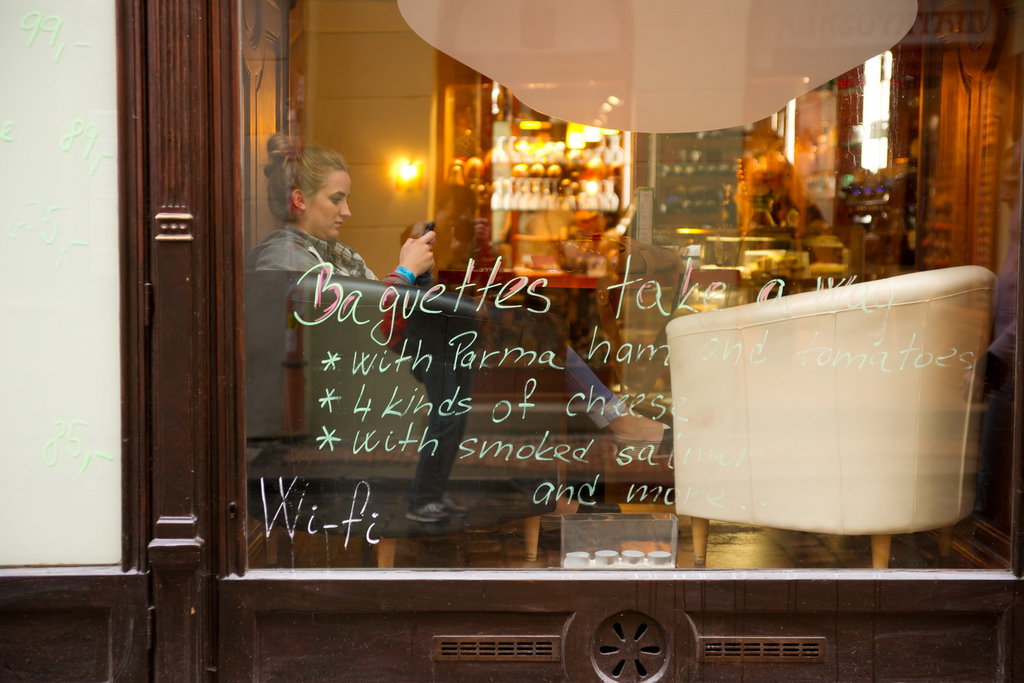 99,-
89,-
25,-
85,-
Baguettes take a way
* with Parma ham and tomatoes
* 4 kinds of cheese
* with smoked salmon
and more...
Wi-fi